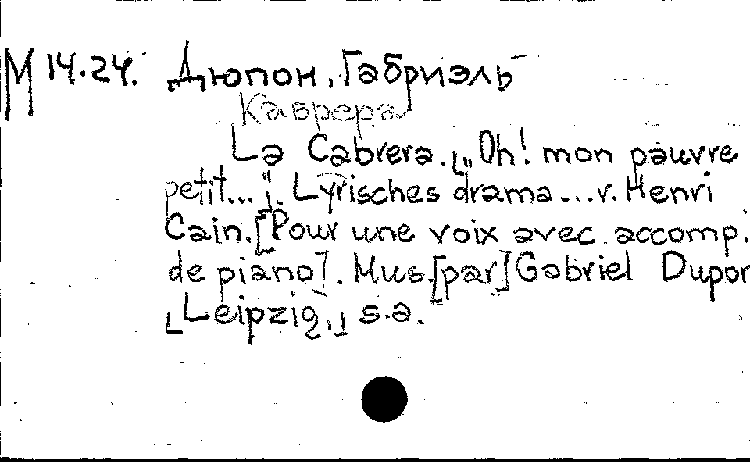 М 14.24. Дюпон, Габриэль
Кабрера
La Cabrera. „Oh! mon pauvre
petit...“. Lyrisches drama...v. Henri
Cain. [Pour une voix avec accomp.
de piano]. Mus. [par] Gabriel Dupon
[Leipzig,] s.a.